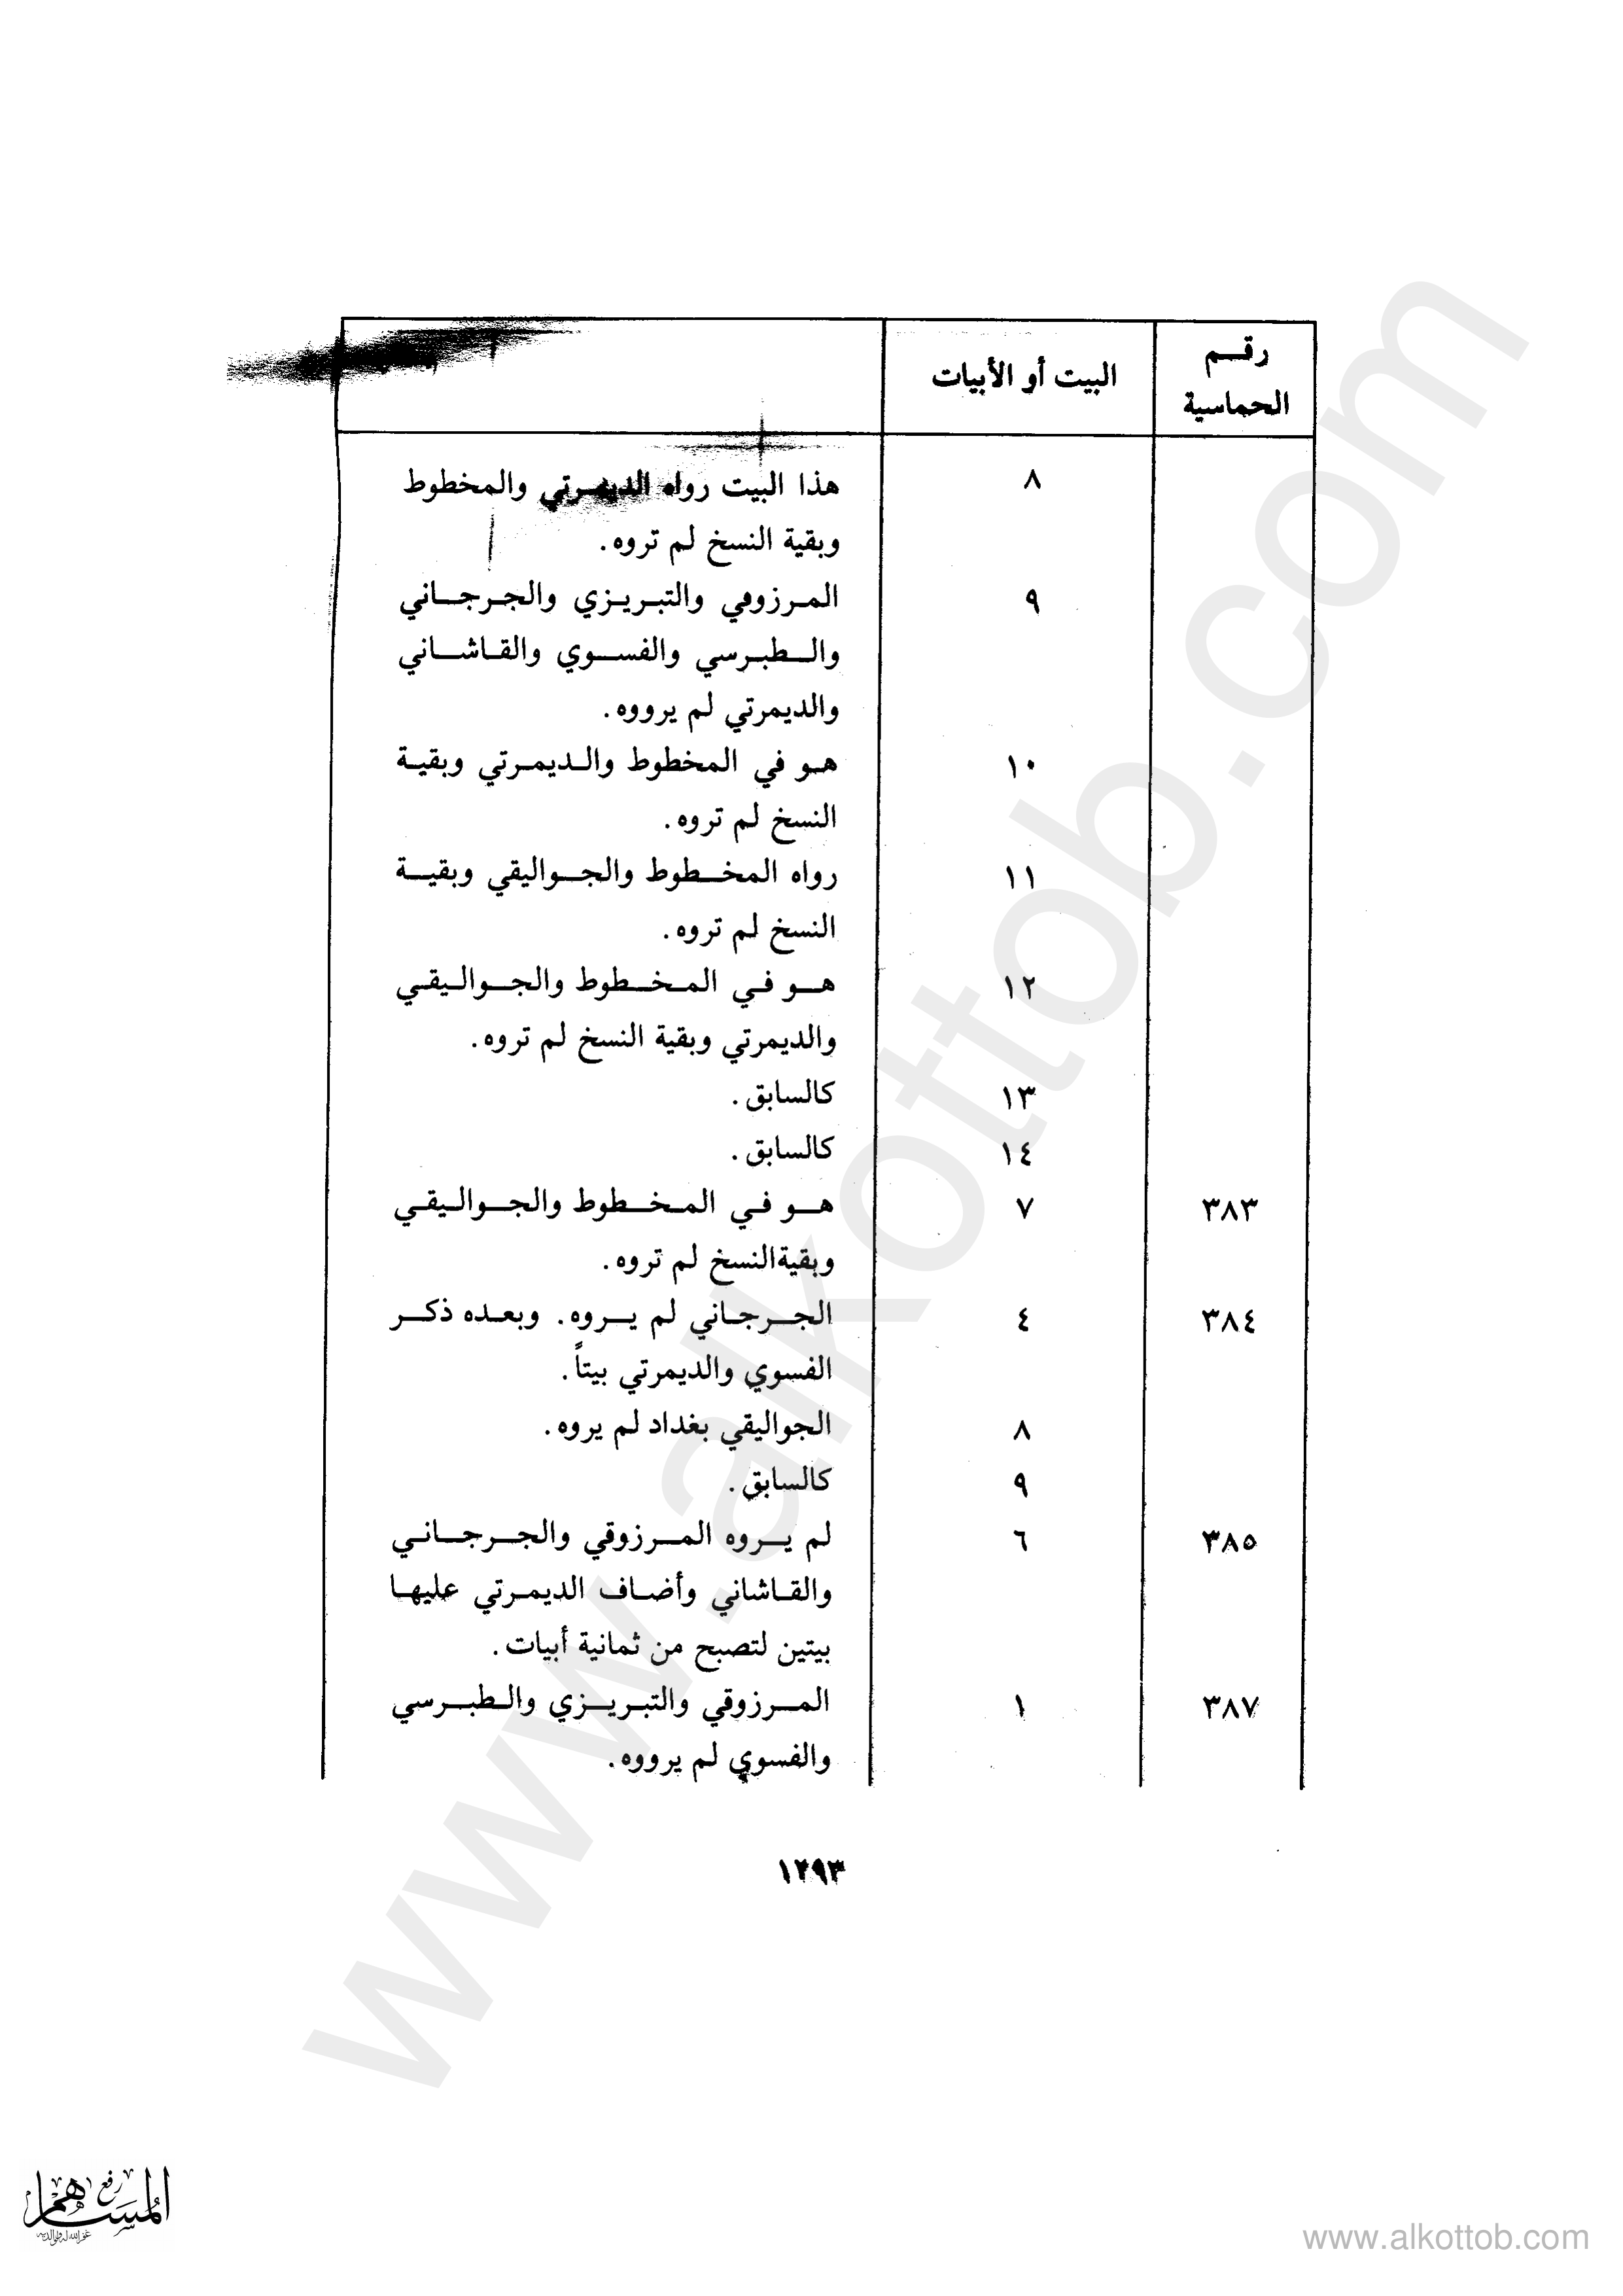 رقم
الحماسية
البيت أو الأبيات
٨ هذا البيت رواه الديمرتي والمخطوط
وبقية النسخ لم تروه.
٩ المرزوقي والتبريزي والجرجاني
والطبرسي والفسوي والقاشاني
والديمرتي لم يرووه.
١٠ هو في المخطوط والديمرتي وبقية
النسخ لم تروه.
١١ رواه المخطوط والجواليقي وبقية
النسخ لم تروه.
١٢ هو في المخطوط والجواليقي
والديمرتي وبقية النسخ لم تروه.
١٣ كالسابق.
١٤ كالسابق.
٣٨٣ ٧ هو في المخطوط والجواليقي
وبقية النسخ لم تروه.
٣٨٤ ٤ الجرجاني لم يروه. وبعده ذكر
الفسوي والديمرتي بيتاً.
٨ الجواليقي بغداد لم يروه.
٩ كالسابق.
٣٨٥ ٦ لم يروه المرزوقي والجرجاني
والقاشاني وأضاف الديمرتي عليها
بيتين لتصبح من ثمانية أبيات.
٣٨٧ ١ المرزوقي والتبريزي والطبرسي
والفسوي لم يرووه.
١٢٩٣
www.alkottob.com
رفع
المساهم
غفر الله له ولوالديه
www.alkottob.com